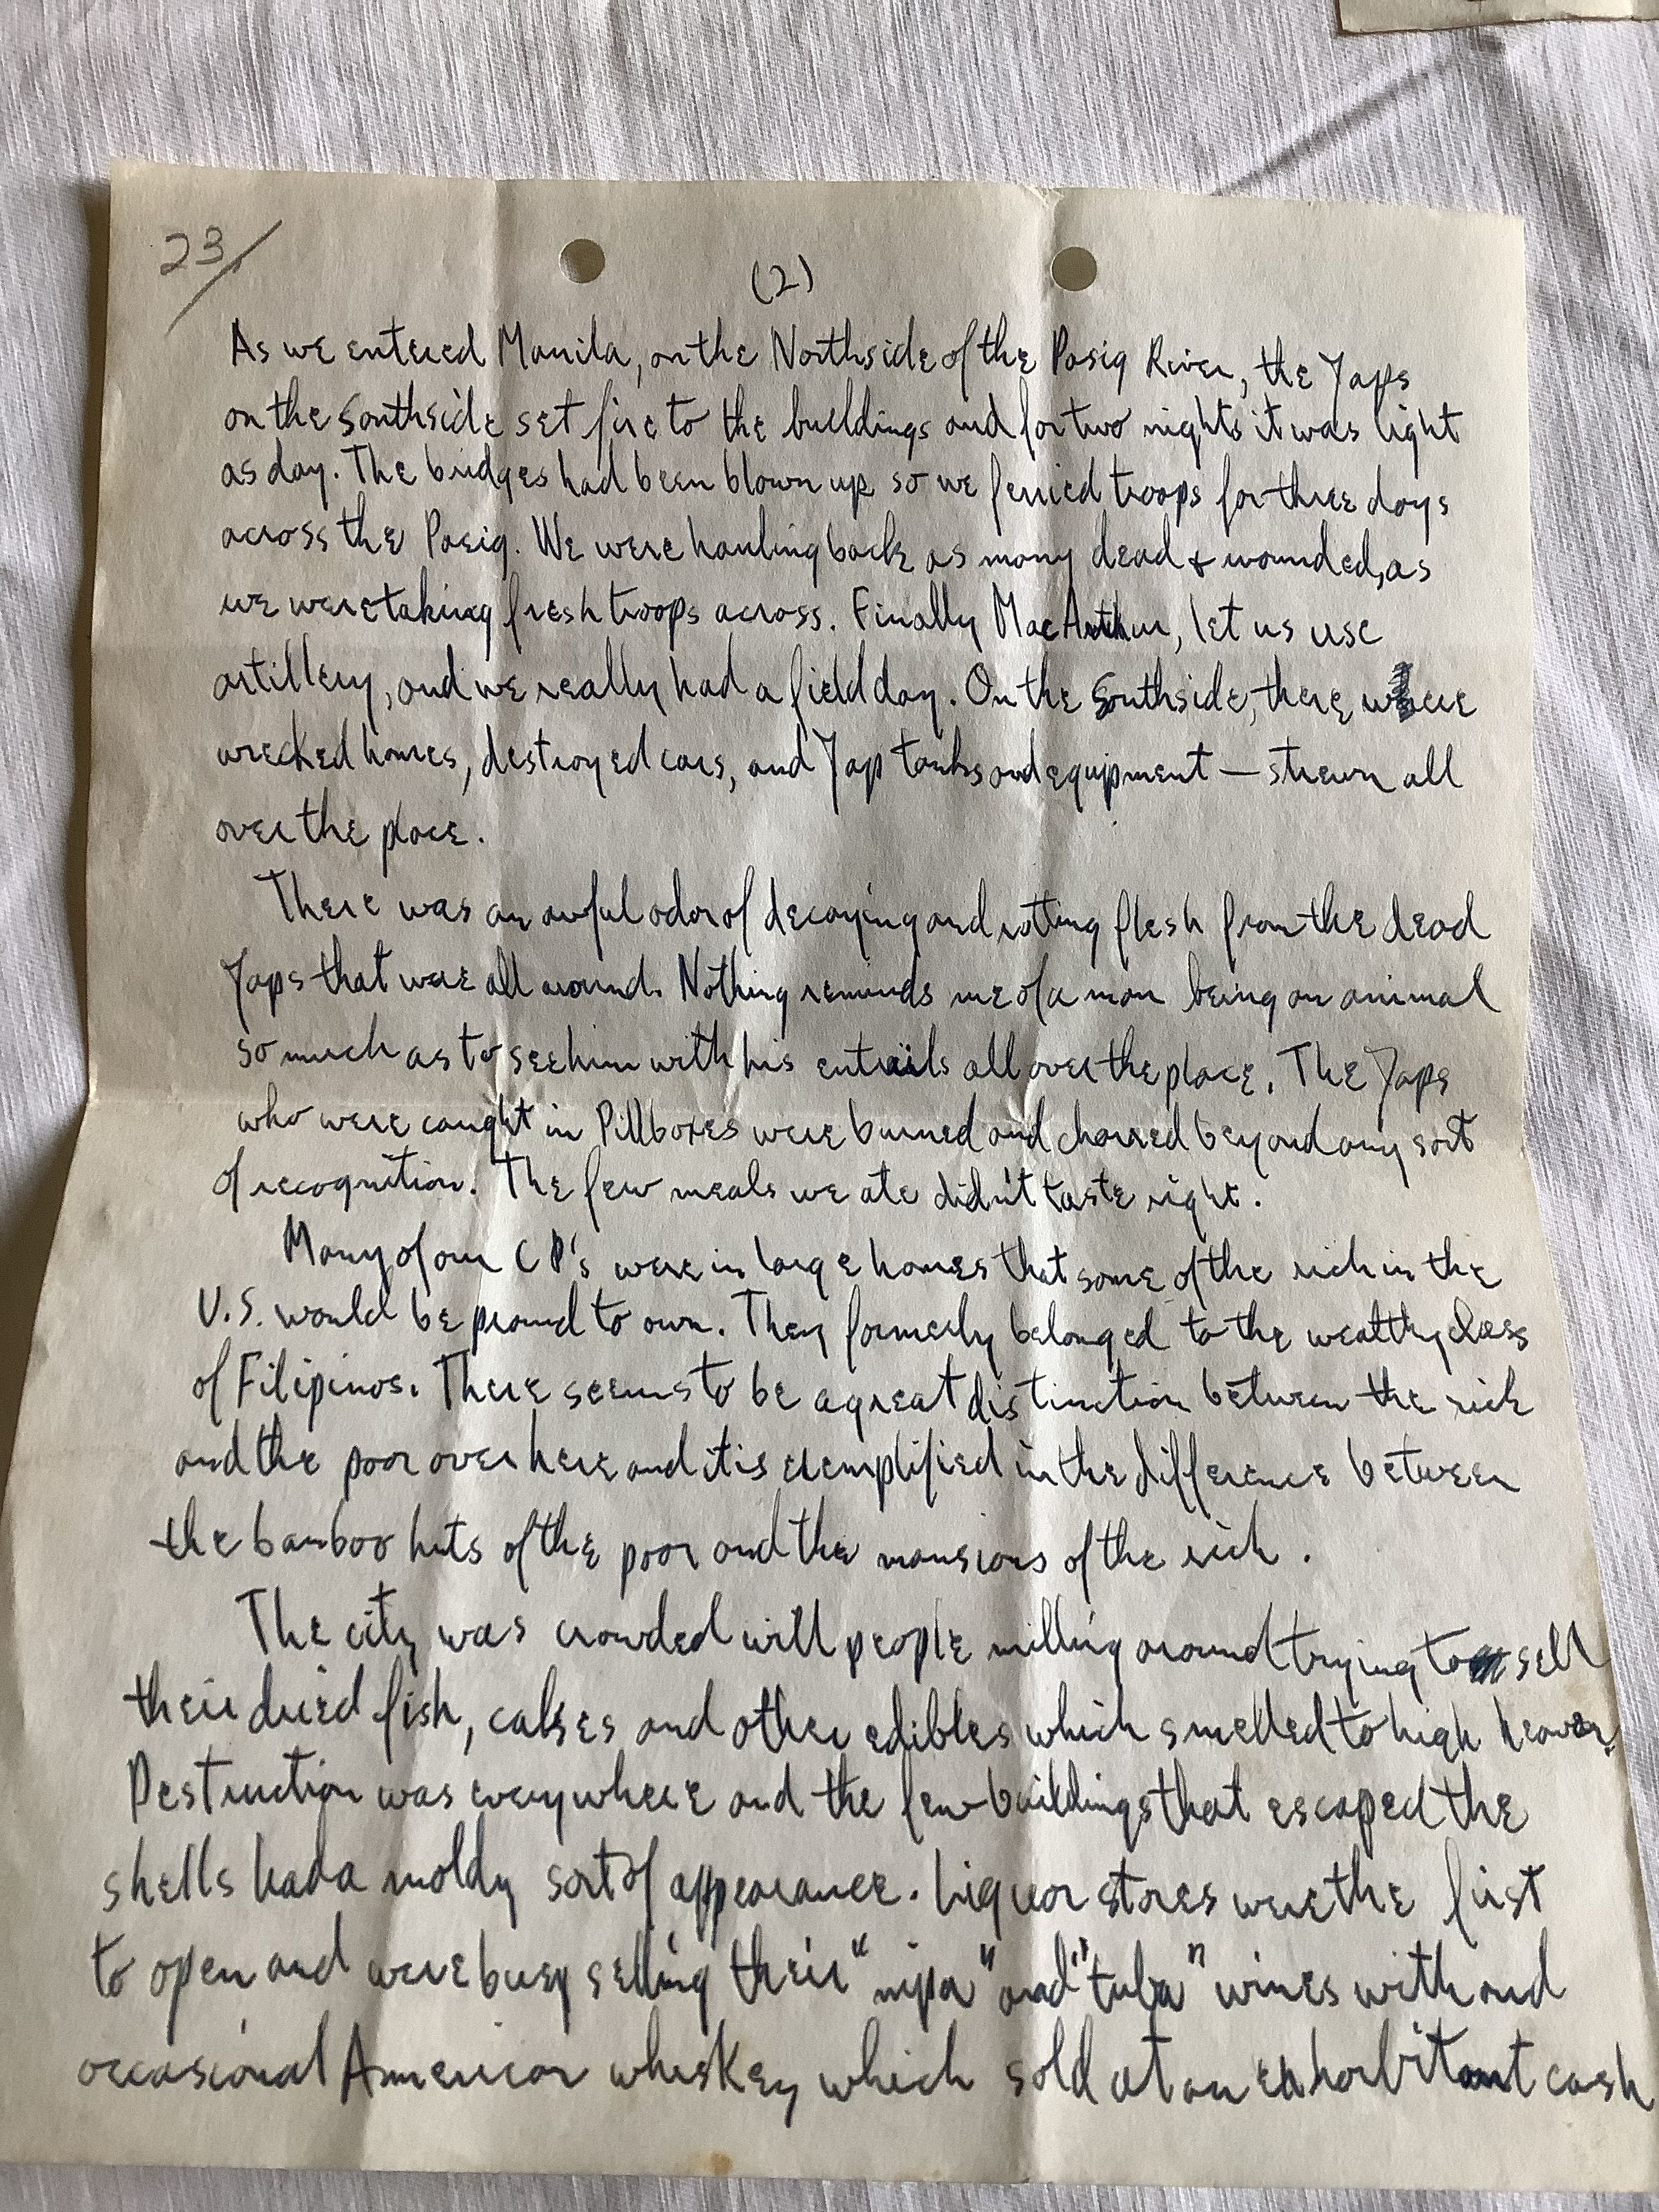 23/
(2)
As we entered Manila, on the Northside of the Pasig River, the Japs
on the Southside set fire to the buildings and for two nights it was light
as day. The bridges had been blown up so we ferried troops for three days
across the Pasig. We were hauling back as many dead & wounded, as
we were taking fresh troops across. Finally MacArthur, let us use
artillery, and we really had a field day. On the Southside, there were
wrecked homes, destroyed cars, and Jap tanks and equipment — strewn all
over the place.
There was an awful odor of decaying and rotting flesh from the dead
Japs that were all around. Nothing reminds me of a man being an animal
so much as to see him with his entrails all over the place. The Japs
who were caught in Pillboxes were burned and charred beyond any sort
of recognition. The few meals we ate didn't taste right.
Many of our CP's were in large homes that some of the rich in the
U.S. would be proud to own. They formerly belonged to the wealthy class
of Filipinos. There seems to be a great distinction between the rich
and the poor over here and it is exemplified in the difference between
the bamboo huts of the poor and the mansions of the rich.
The city was crowded will people milling around trying to sell
their dried fish, cakes and other edibles which smelled to high heaven.
Destruction was everywhere and the few buildings that escaped the
shells had a moldy sort of appearance. Liquor stores were the first
to open and were busy selling their "nipa" and "tuba" wines with and
occasional American whiskey which sold at an exhorbitant cash